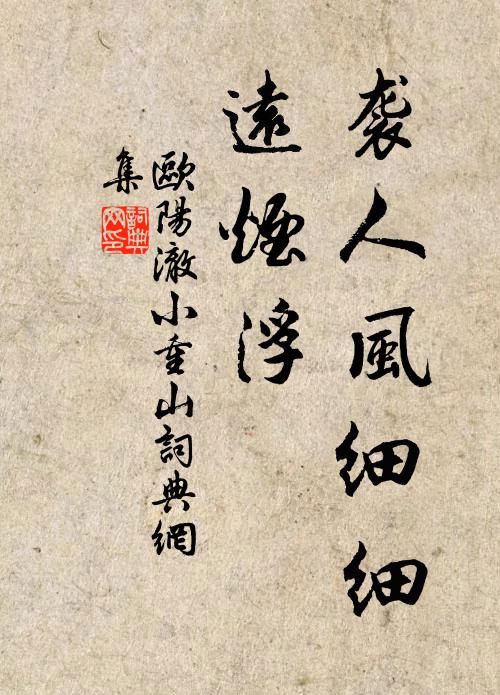 袭人風细细
遠煙浮
歐陽澈小重山詞典網
集
詞典
网印